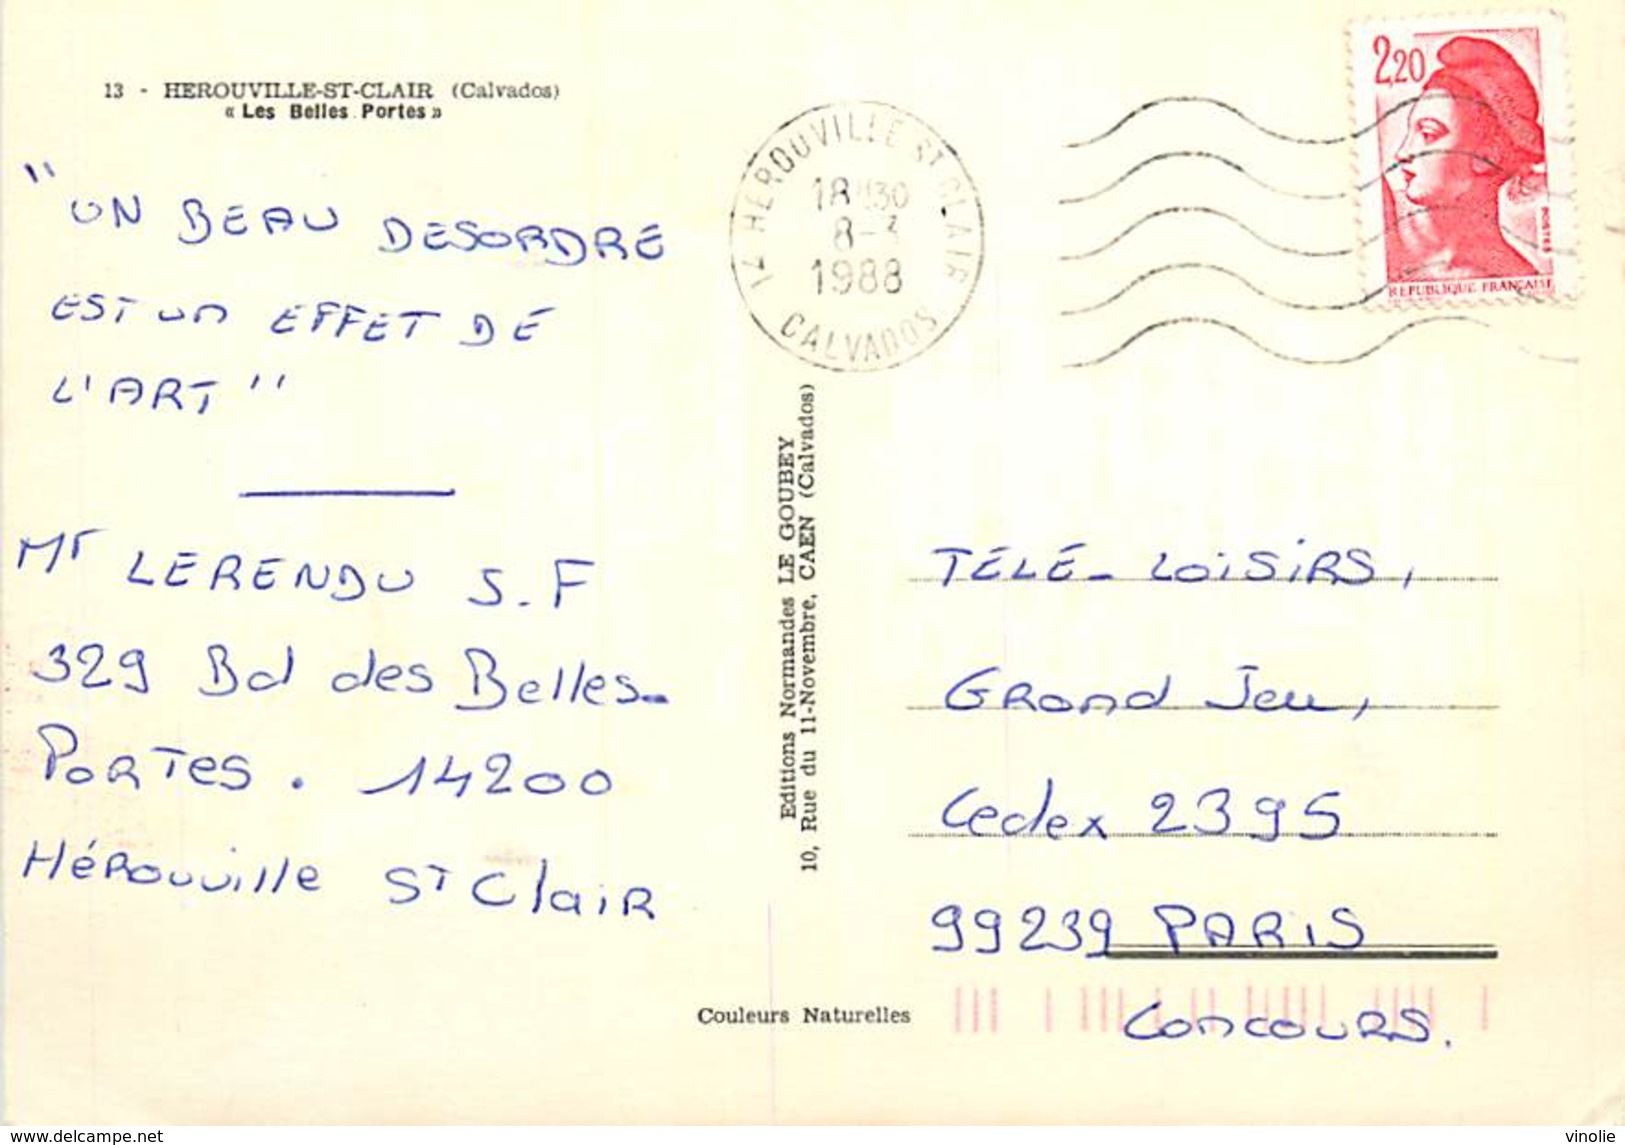 13 - HEROUVILLE-ST-CLAIR (Calvados)
« Les Belles Portes »
"UN BEAU DESORDRE
EST un EFFET DE
L'ART"
Mr LERENDU S.F
329 Bd des Belles-
PORTES . 14200
Hérouville St Clair
Editions Normandes LE GOUBEY
10, Rue du 11-Novembre, CAEN (Calvados)
Couleurs Naturelles
14 HEROUVILLE ST CLAIR
18H30
8-3
1988
CALVADOS
2,20
POSTES
REPUBLIQUE FRANÇAISE
TÉLÉ-LOiSiRS,
GRand Jeu,
Cedex 2395
99239 PARIS
CONCOURS.
delcampe.net
vinolie